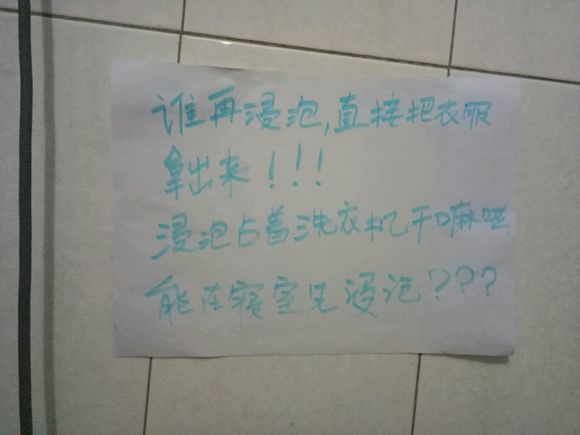 谁再浸泡,直接把衣服
拿出来!!!
浸泡占着洗衣机干嘛
能在寝室先浸泡???